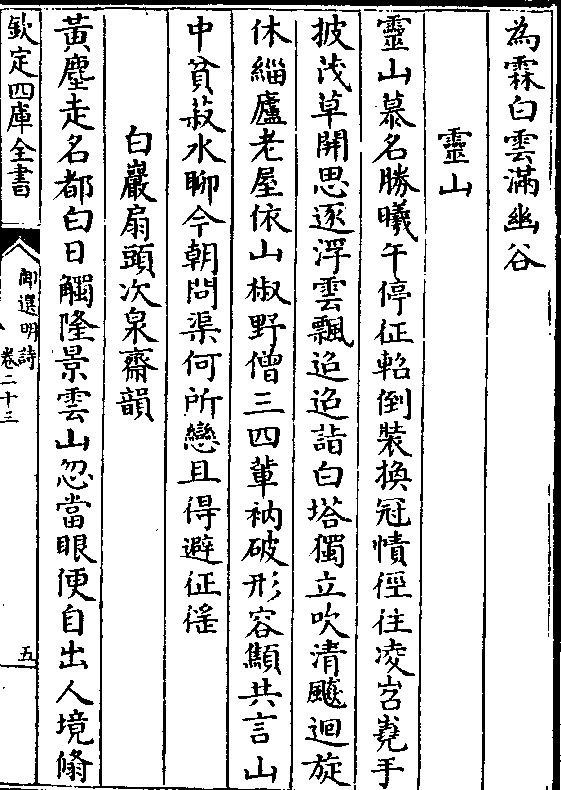 為霖白雲滿幽谷
靈山
靈山慕名勝曦午停征軺倒裝換冠幘徑往凌岧嶤手
披茂草開思逐浮雲飄迢迢詣白塔獨立吹清飈迴旋
休緇廬老屋依山椒野僧三四軰衲破形容顦共言山
中貧菽水聊今朝問渠何所戀且得避征徭
白巖扇頭次泉齋韻
黃塵走名都白日觸隆景雲山忽當眼便自出人境翛
欽定四庫全書
御選明詩
卷二十三
五